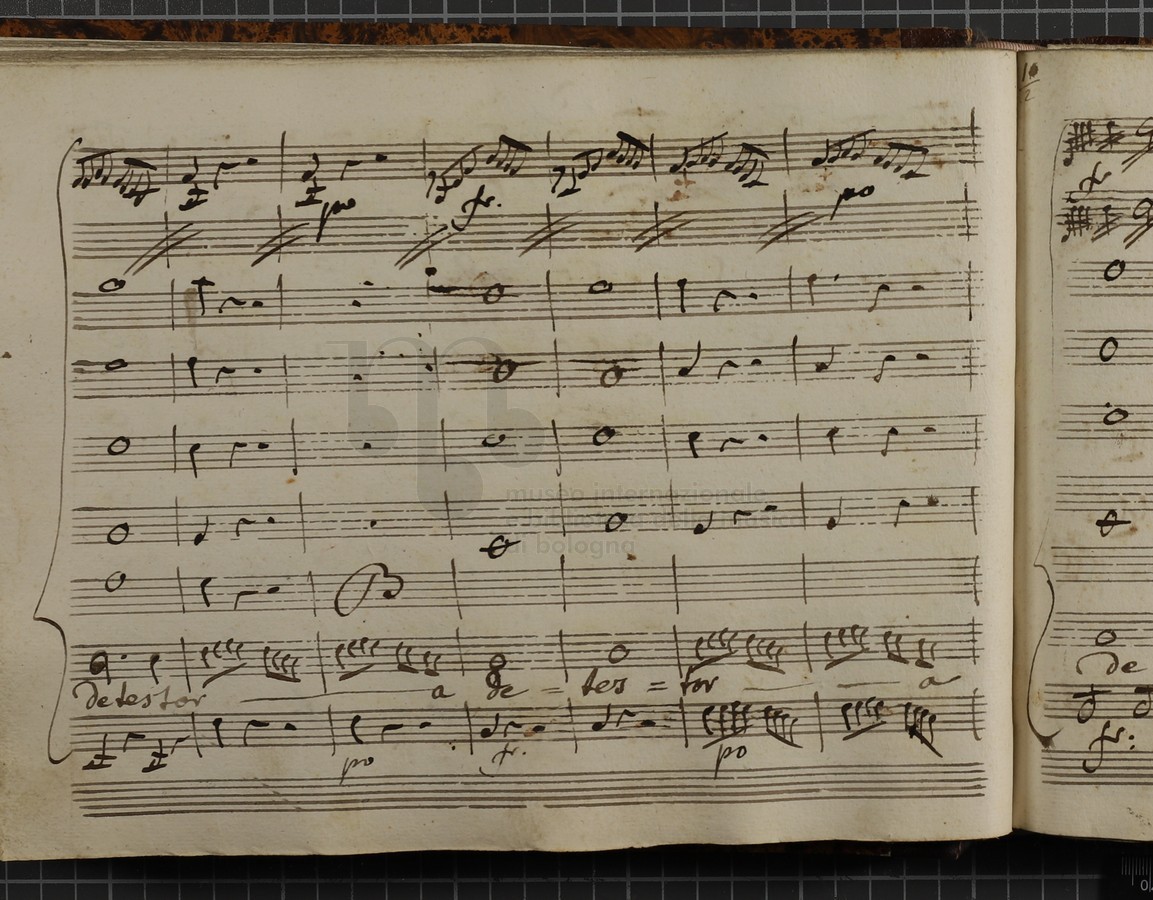 10
2
po
fr.
po
fr
museo internazionale
e biblioteca della musica
di bologna
detestor a de = tes = tor a
De
po
fr.
po
fr: